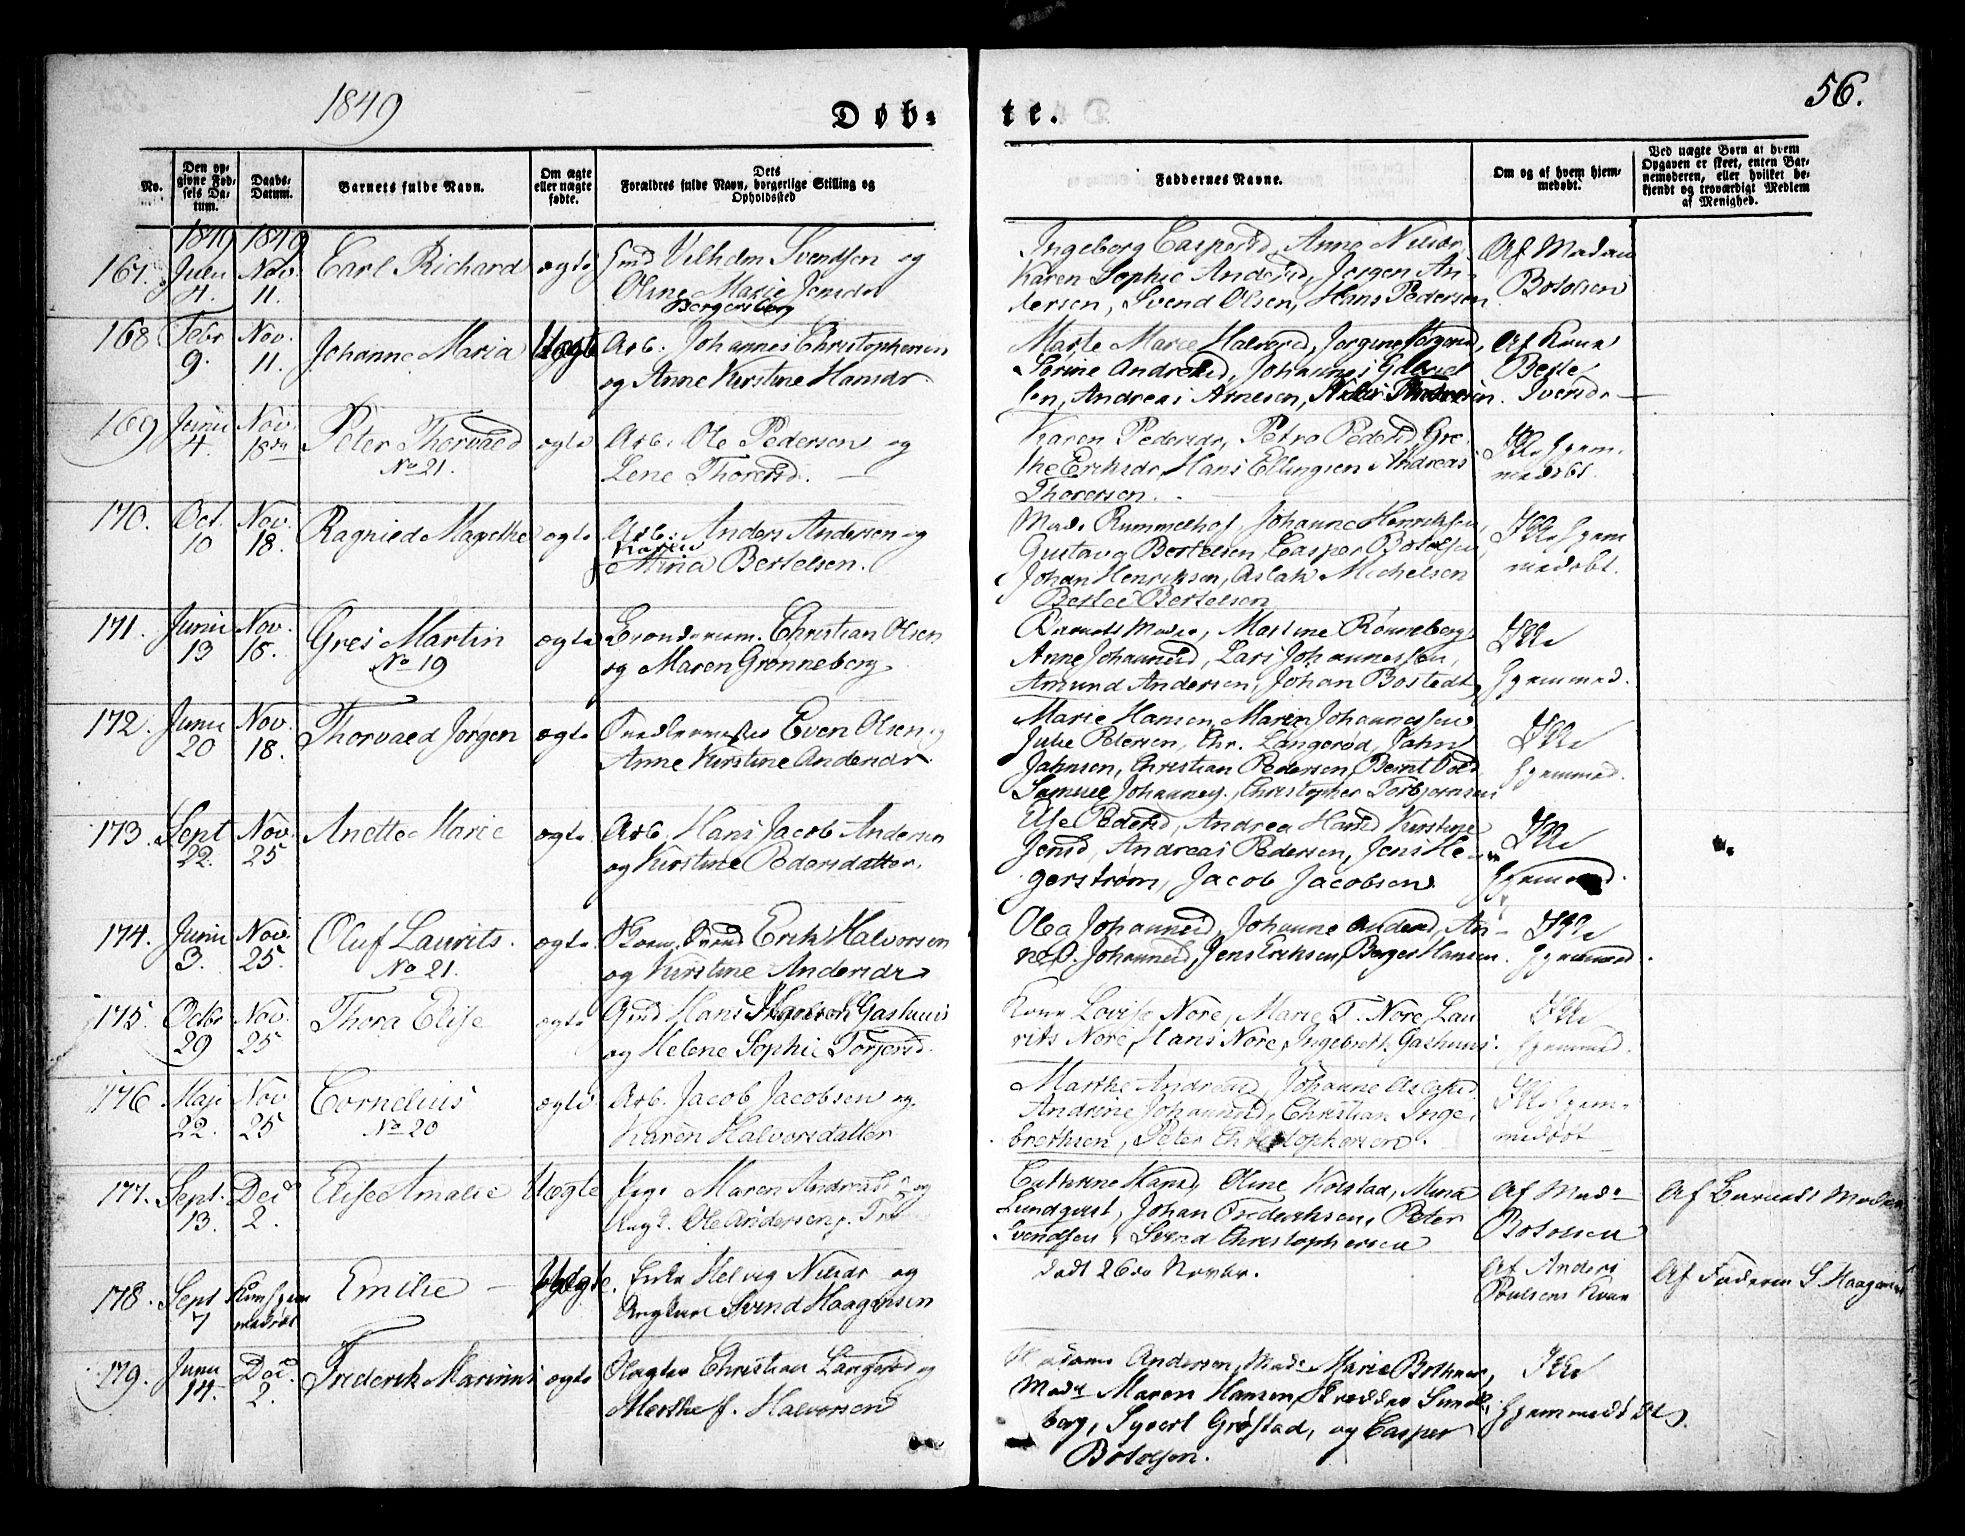 1849
Døb-
te.
56.
No.
Den op-
givne Fød-
sels Da-
tum.
Daabs-
Datum.
Barnets fulde Navn.
Om ægte
eller uægte
fødte.
Dets
Forældres fulde Navn, borgerlige Stilling og
Opholdssted
Faddernes Navne.
Om og af hvem hjem-
medøbt.
Ved uægte Børn at hvem
Opgaven er skeet, enten Bar-
nemoderen, eller hvilket be-
kjendt og troværdigt Medlem
af Menighed.
1849 1849
167. Juli 4. Nov. 11. Carl Richard ægte
Vilhelm Svendsen og
Oline Marie Jensdr
Bergersborg
Ingeborg Caspersd, Anne Nilsdr,
Karen Sophie Andersd, Jørgen An-
dersen, Svend Olsen, Hans Pedersen
Af Madam
Botolsen
168 Febr 9. Nov. 11. Johanne Maria Uægte
Arb. Johannes Christophersen
og Anne Kirstine Hansdr.
Marte Marie Halvorsd, Jørgine Jørgensd,
Sørine Andreasd, Johannes Gabriel
sen, Andreas Arnesen,
Af Kone
Berte
Iversdr
169 Junii 4. Nov. 18de Peter Thorvald ægte
No 21.
Arb. Ole Pedersen og
Lene Thoresd.
Karen Pedersdr, Petra Pedersd, Gre-
the Eriksdr, Hans Ellingsen Andreas
Thoresen.
Ikke hjem-
medøbt.
170. Oct. 10 Nov. 18. Ragnild Magrethe ægte
Arb. Anders Andersen og
Karen
Anna Bertelsen.
Mad. Rummelhof, Johanne Henriksen,
Gustava Bertelsen, Casper Botolsen,
Johan Henriksen, Aslak Michelsen
Bertel Bertelsen
Ikke hjem
medøbt.
171. Junii 13 Nov. 18. Gres Martin ægte
No 19
Christian Olsen
og Maren Grønneberg
Barnets Moder, Martine Rønneberg
Anne Johannesd, Lars Johannessen,
Amund Andersen, Johan Bostedt,
Ikke
hjemmed.
172. Junii 20 Nov. 18. Thorvald Jørgen ægte
Even Olsen og
Anne Kirstine Andersdr.
Marie Hansen, Maren Johannessen
Julie Petersen, Chr. Langerød, Jahn
Jahnsen, Christian Pedersen, Bernt
Samuel Johannes., Christopher Torbjørnsen
Ikke
hjemmed.
173. Sept 22. Nov. 25 Anette Marie ægte
Arb. Hans Jacob Andersen
og Kirstine Pedersdatter.
Else Pedersd, Andrea Hansd Kirstine
Jensd, Andreas Pedersen, Jens He-
gerstrøm, Jacob Jacobsen
Ikke
hjemmed.
174. Junii 3. Nov. 25. Oluf Laurits. ægte
No 21.
Erik Halvorsen
og Kirstine Andersdr
Olea Johannesd, Johanne Andersd, An-
ne O. Johannesd, Jens Eriksen, Berger Hansen.
Ikke
hjemmed.
175. Octbr 29 Nov. 25 Thora Elise ægte
Hans Gashuus
og Helene Sophie Torjersd.
Kone Lovise Nore, Marie T. Nore, Lau
rits Nore, Hans Nore, Ingebreth Gashuus.
Ikke
hjemmed.
176 Maji 22. Nov 25 Cornelius ægte
No 20
Arb. Jacob Jacobsen og
Karen Halvorsdatter
Marthe Andreasd, Johanne Aslaksd.
Andrine Johannesd, Christian Inge-
brethsen, Peter Christophersen.
Ikke hjem-
medøbt
177. Sept. 13. Dec 2. Elise Amalie Uægte
Pige Maren Andreasd og
Ungk. Ole Andersen
Cathrine Hansd, Oline Kolstad, Mina
Lundqvist, Johan Frederiksen, Peter
Svendsen, Svend Christophersen
Af Mad
Botolsen
Af Barnets Moder
178. Sept 7 Kun hjem
medøbt Emilie Uægte.
Enke Helvig Nilsdr og
Ungkarl Svend Haagensen
Død 26de Novbr.
Af Anders
Poulsens Kone
Af Faderen S. Haagensen
179. Junii 14. Dec. 2. Frederik Marinius ægte
Christian Langerød og
Merthe f. Halvorsen
Madame Andersen, Mad. Marie Bothner,
Mad. Maren Hansen, Skrædder Sund-
berg, Syvert Grøstad, og Casper
Botolsen.
Ikke
hjemmedøbt.